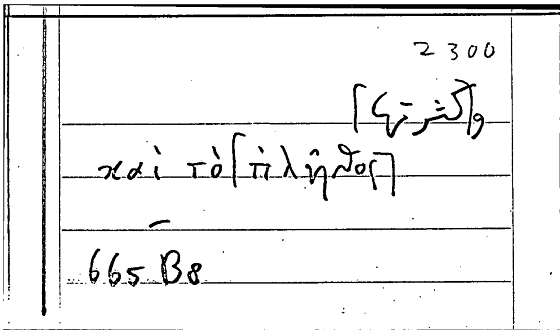 2300
و[كثرتها]
καὶ τὸ [πλῆθος]
665 B8